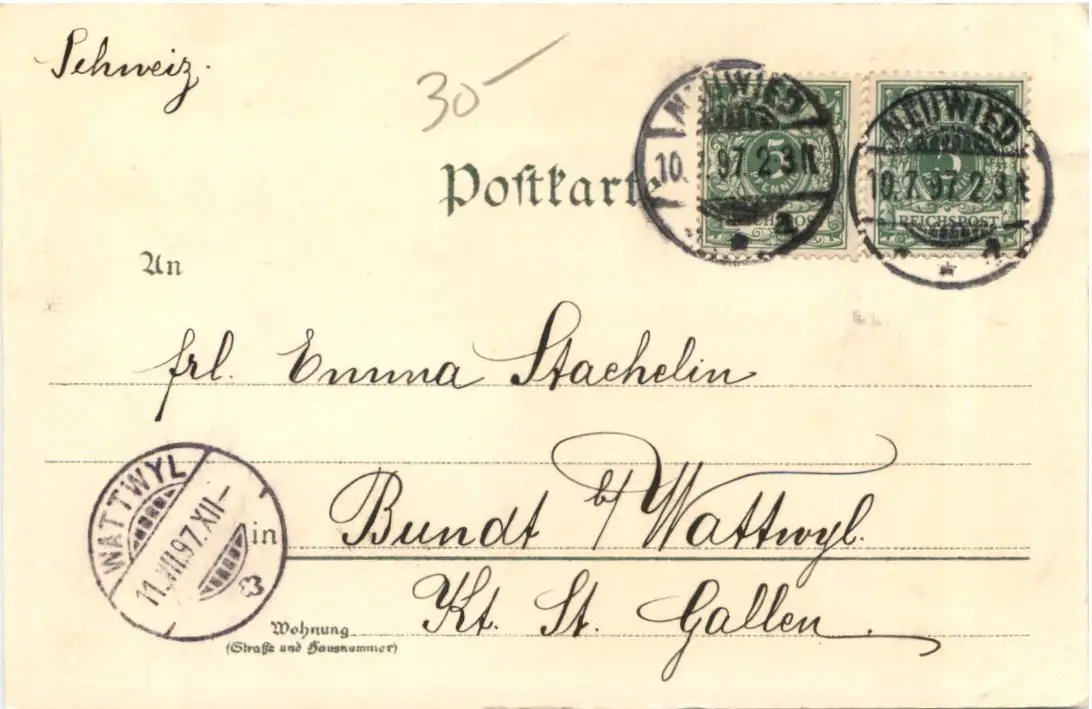 Schweiz.
30-
Postkarte
NEUWIED
10. 97 2-3 N
5
PFENNIG
REICHSPOST
a
NEUWIED
10.7.97 2-3 N
5
REICHSPOST
a
An
Frl. Emma Stachelin
WATTWYL
11.VII.97.XII-
in Bundt b/ Wattwyl.
Wohnung Kt. St. Gallen.
(Straße und Hausnummer)